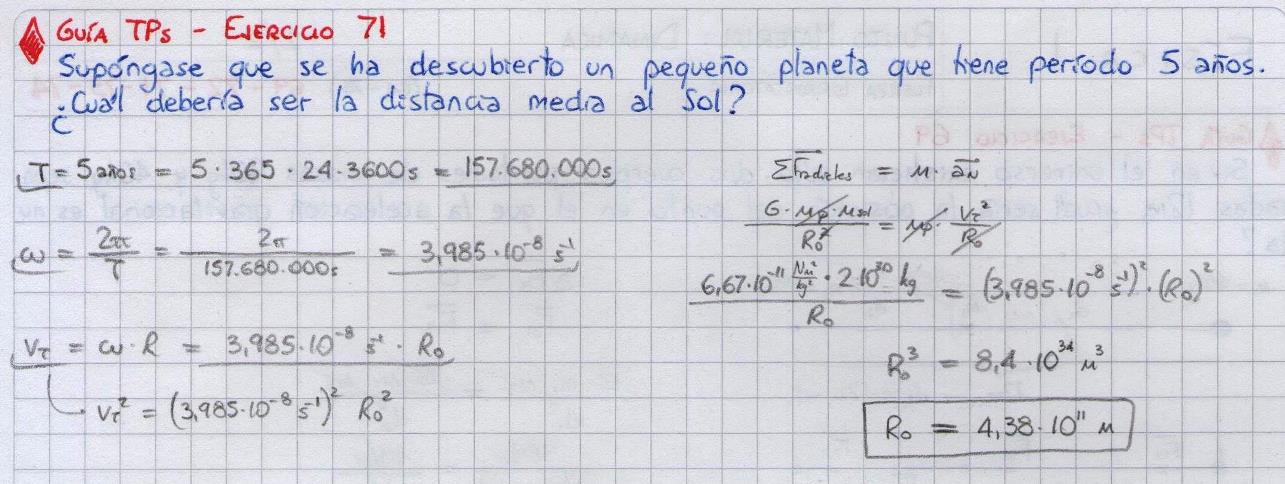 GUÍA TPs - EJERCICIO 71
Supóngase que se ha descubierto un pequeño planeta que tiene período 5 años.
¿Cuál debería ser la distancia media al Sol?
T = 5 años = 5 · 365 · 24 · 3600 s = 157.680.000 s
ω = 2π/T = 2π/157.680.000 s = 3,985 · 10⁻⁸ s⁻¹
V_T = ω · R = 3,985 · 10⁻⁸ s⁻¹ · R₀
V_T² = (3,985 · 10⁻⁸ s⁻¹)² R₀²
ΣF radiales = M · a_N
G · Mp · Msol / R₀² = Mp · V_T² / R₀
6,67 · 10⁻¹¹ Nm²/kg² · 2 · 10³⁰ kg / R₀ = (3,985 · 10⁻⁸ s⁻¹)² · (R₀)²
R₀³ = 8,4 · 10³⁴ m³
R₀ = 4,38 · 10¹¹ m